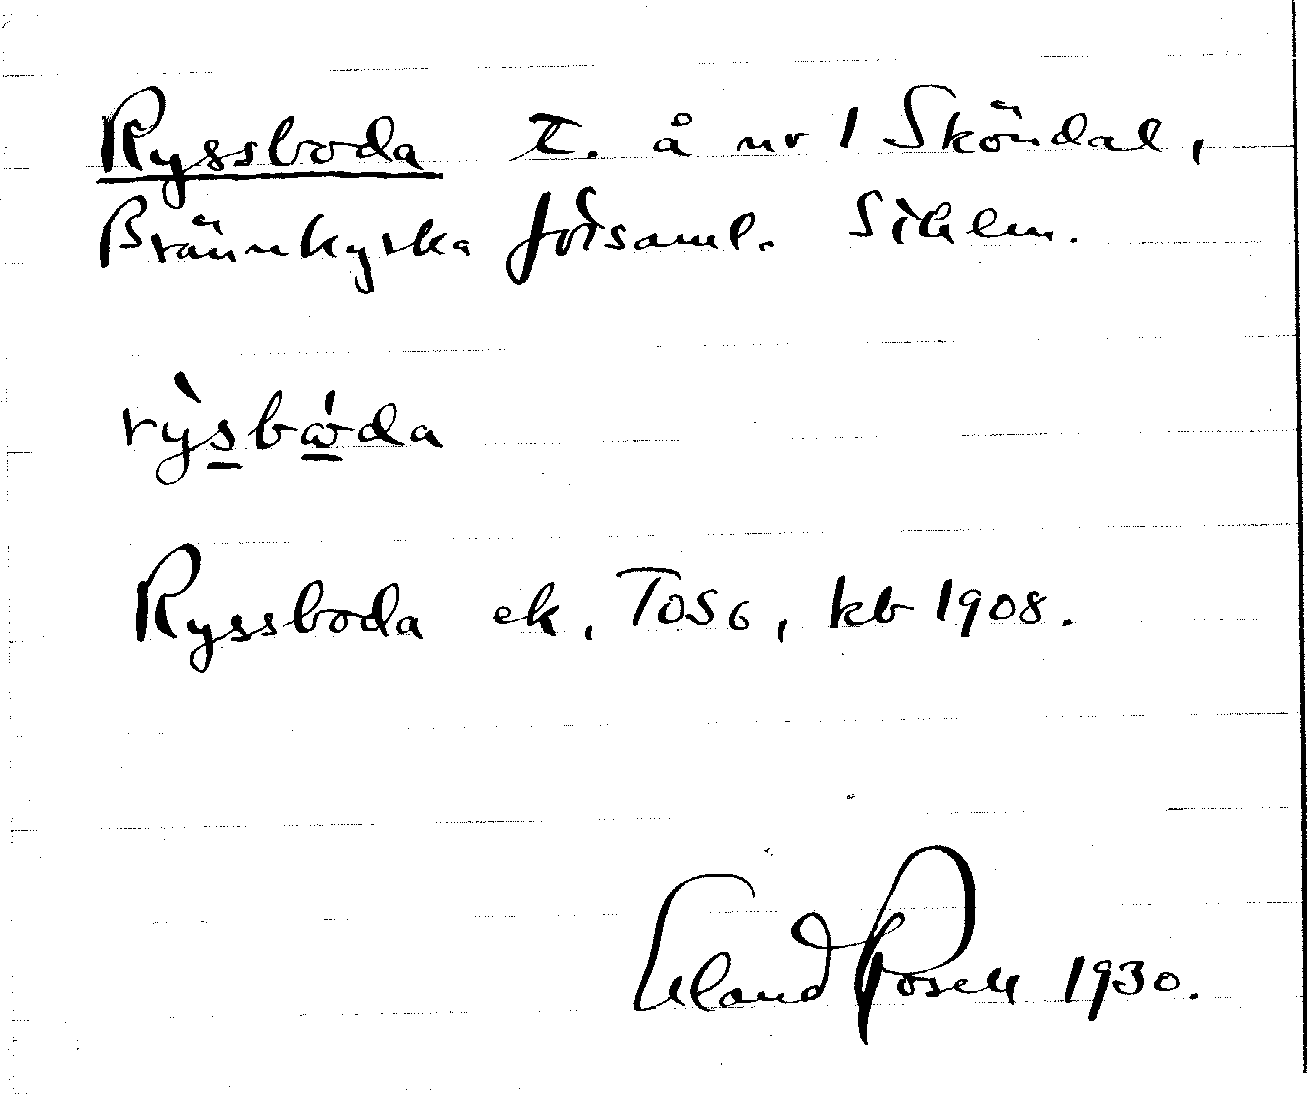 Ryssboda t. å nr 1 Sköndal,
Brännkyrka församl. Sthlm.
rỳsbω̇da
Ryssboda ek, TOS6, kb 1908.
Erland Rosell 1930.